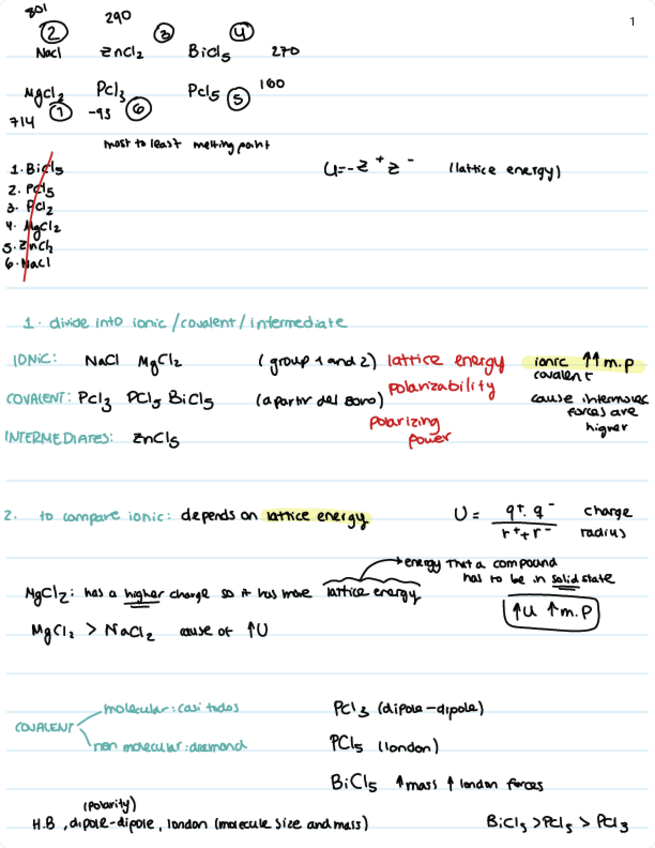 1
801 290
② ③ ④
NaCl ZnCl2 BiCl5 270
MgCl2 PCl3 PCl5 ⑤ 160
714 ① -93 ⑥
most to least melting point
1. BiCl5
2. PCl5
3. PCl2
4. MgCl2
5. ZnCl2
6. NaCl
U=-Z+Z- (lattice energy)
1. divide into ionic/covalent/intermediate
IONIC: NaCl MgCl2 (group 1 and 2) lattice energy ionic ↑↑ m.p
covalent
COVALENT: PCl3 PCl5 BiCl5 (apartir del) polarizability cause intermolec
forces are
higher
polarizing
power
INTERMEDIATES: ZnCl5
2. to compare ionic: depends on lattice energy U = q+. q- / r+ + r- charge
radius
energy that a compound
has to be in solid state
MgCl2: has a higher charge so it has more lattice energy
↑U ↑m.p
MgCl2 > NaCl2 cause of ↑U
COVALENT
molecular: casi todos
non molecular: diamond
PCl3 (dipole-dipole)
PCl5 (london)
BiCl5 ↑mass ↑ london forces
(polarity)
H.B, dipole-dipole, london (molecule size and mass) BiCl5 > PCl5 > PCl3